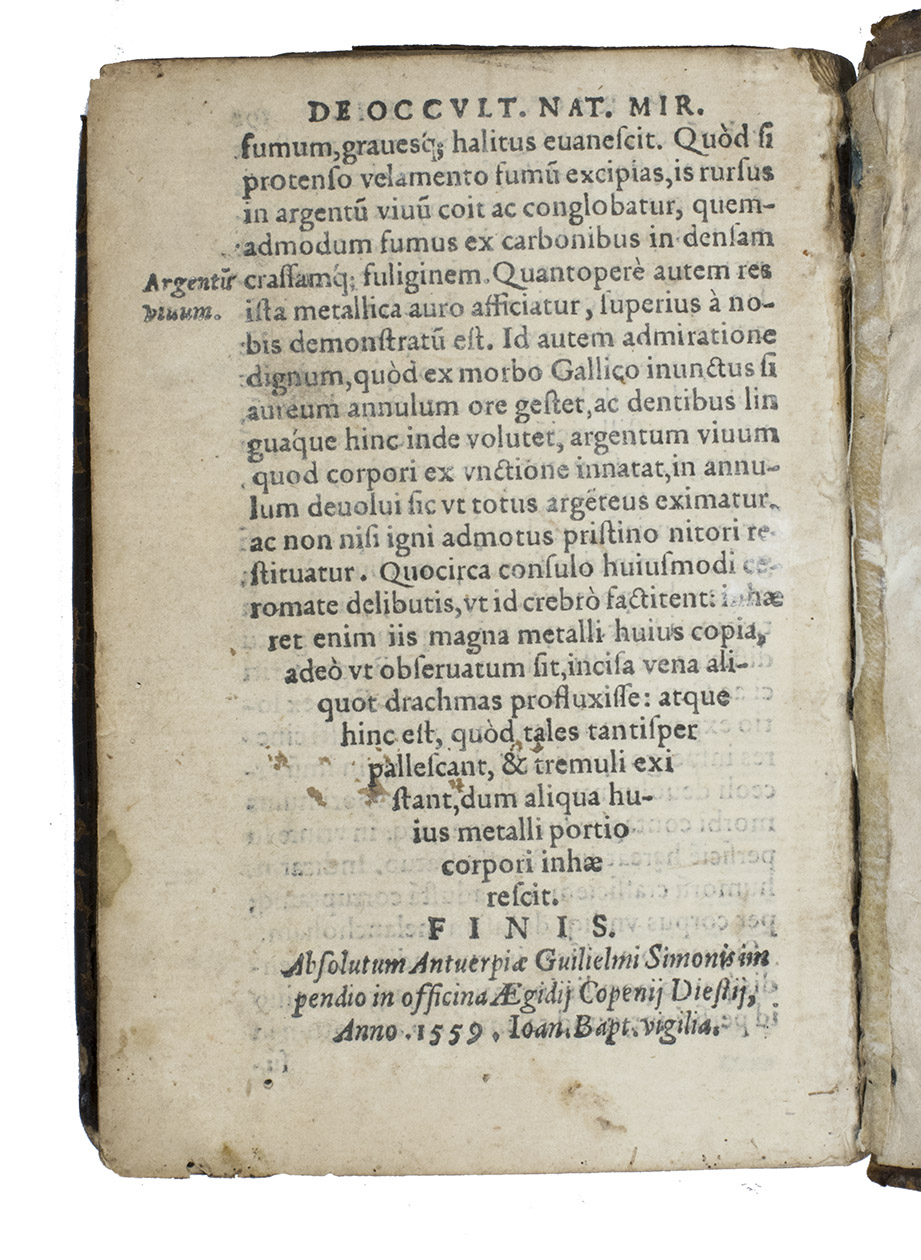 DE OCCVLT. NAT. MIR.
fumum,grauesq́; halitus euaneſcit. Quòd ſi
protenſo velamento fumū excipias,is rurſus
in argentū viuū coit ac conglobatur, quem-
admodum fumus ex carbonibus in denſam
Argentū
viuum.
craſſamq́; fuliginem. Quantoperè autem res
iſta metallica auro afficiatur, ſuperius à no-
bis demonſtratū eſt. Id autem admiratione
dignum,quòd ex morbo Gallico inunctus ſi
aureum annulum ore geſtet,ac dentibus lin
guáque hinc inde volutet, argentum viuum
quod corpori ex vnctione innatat,in annu-
lum deuolui ſic vt totus argēteus eximatur,
ac non niſi igni admotus priſtino nitori re-
ſtituatur. Quocirca conſulo huiuſmodi ce-
romate delibutis,vt id crebrò factitent: inhæ
ret enim iis magna metalli huius copia,
adeò vt obſeruatum ſit,inciſa vena ali-
quot drachmas profluxiſſe: atque
hinc eſt, quòd tales tantiſper
palleſcant, & tremuli exi
ſtant,dum aliqua hu-
ius metalli portio
corpori inhæ
reſcit.
FINIS.
Abſolutum Antuerpiæ Guilielmi Simonis im
pendio in officina Ægidij Copenij Dieſtij,
Anno .1559. Ioan.Bapt.vigilia.